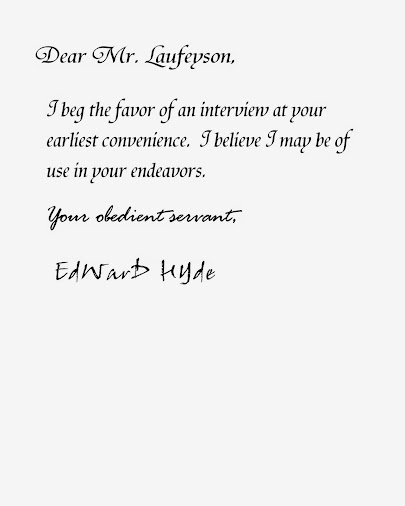 Dear Mr. Laufeyson,
I beg the favor of an interview at your
earliest convenience.  I believe I may be of
use in your endeavors.
Your obedient servant,
EdWarD HYde